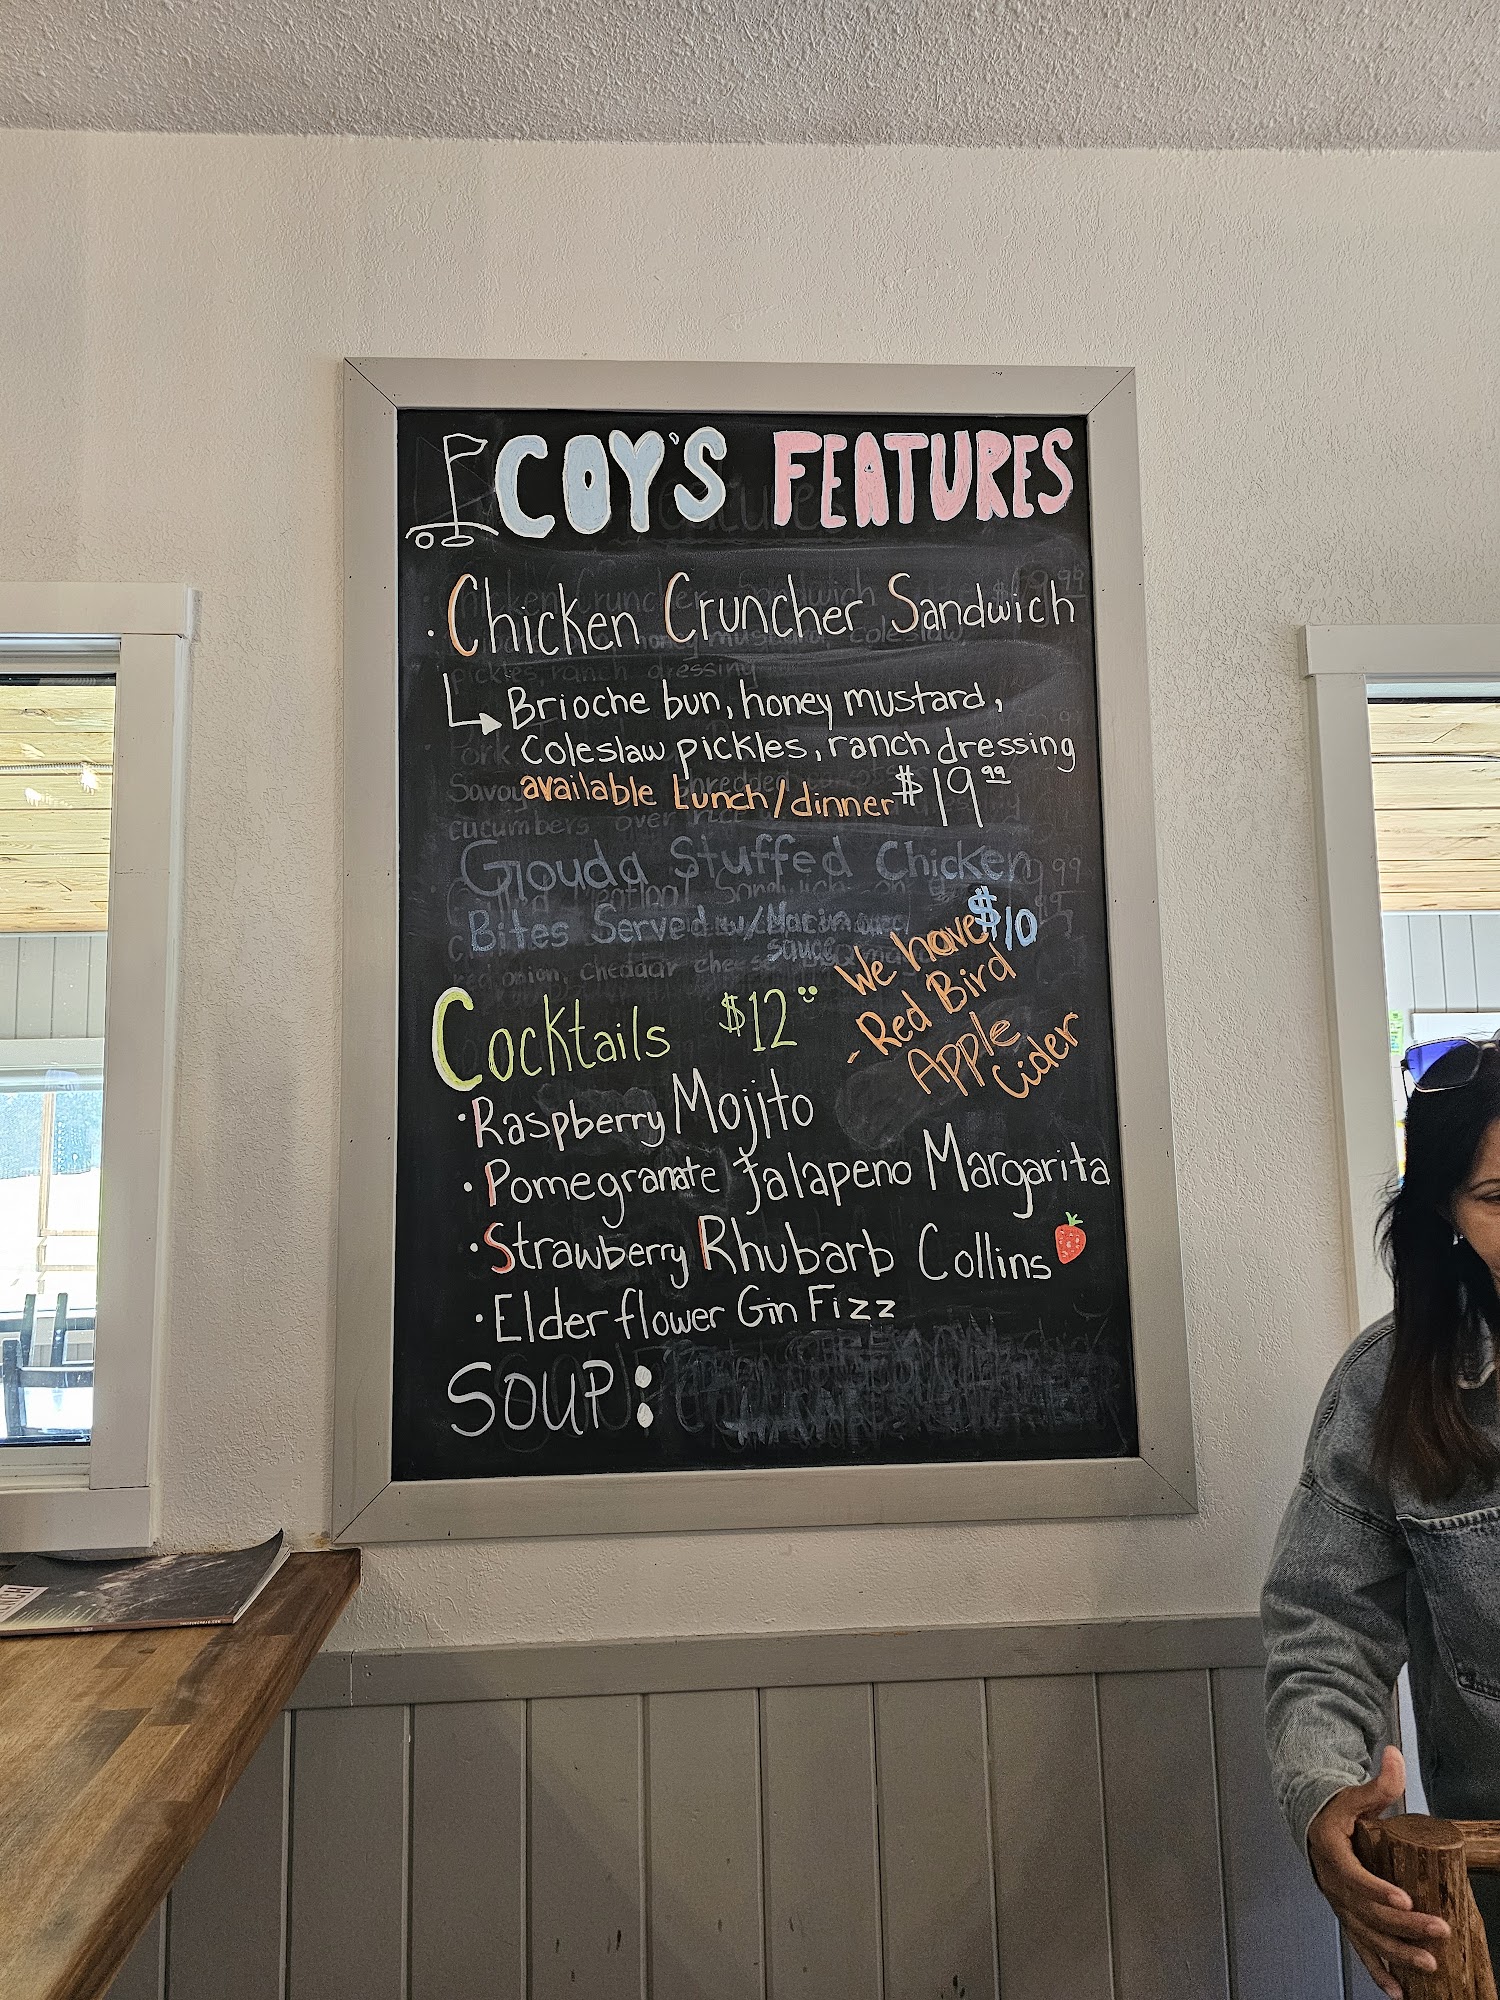 COY'S FEATURES
· Chicken Cruncher Sandwich
Brioche bun, honey mustard,
coleslaw pickles, ranch dressing
available Lunch/dinner $19.99
Gouda Stuffed Chicken
Bites Served w/
sauce
$10
We have
- Red Bird
Apple
Cider
Cocktails $12
· Raspberry Mojito
· Pomegranate Jalapeno Margarita
· Strawberry Rhubarb Collins
· Elderflower Gin Fizz
SOUP: